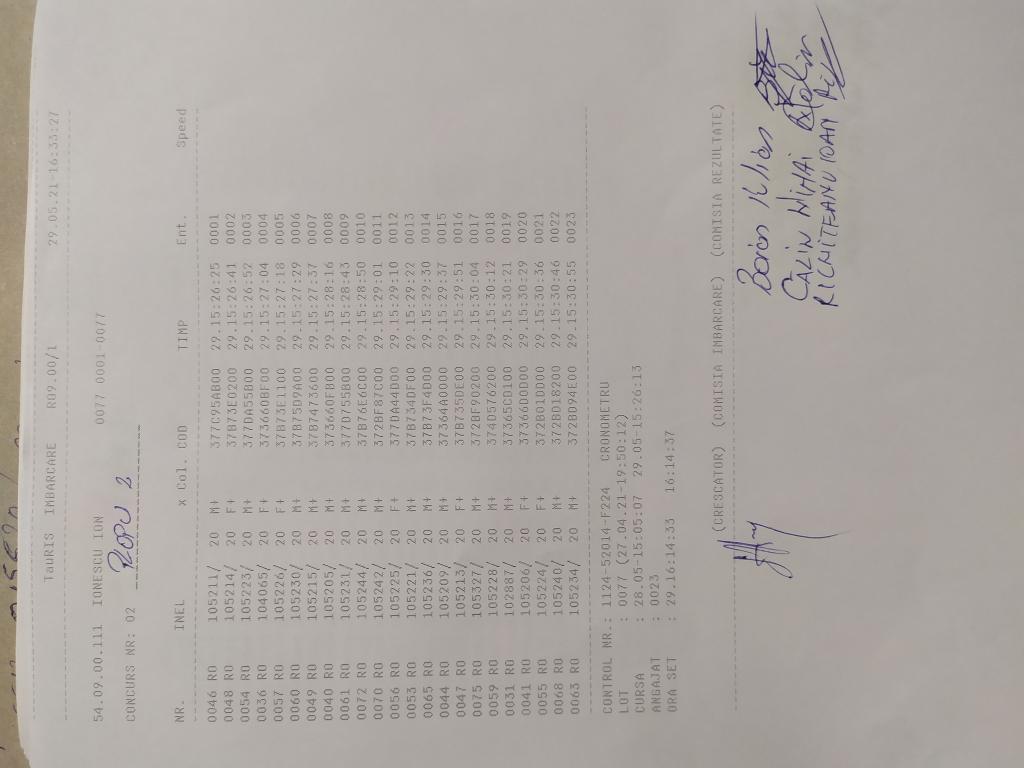 TauRIS IMBARCARE R09.00/1 29.05.21-16:33:27
54.09.00.111 IONESCU ION 0077 0001-0077
CONCURS NR: 02
NR. INEL x Col. COD TIMP Ent. Speed
0046 RO 105211/ 20 M+ 377C95AB00 29.15:26:25 0001
0048 RO 105214/ 20 F+ 37B73E0200 29.15:26:41 0002
0054 RO 105223/ 20 M+ 377DA55B00 29.15:26:52 0003
0036 RO 104065/ 20 F+ 373660BF00 29.15:27:04 0004
0057 RO 105226/ 20 F+ 37B73E1100 29.15:27:18 0005
0060 RO 105230/ 20 M+ 37B75D9A00 29.15:27:29 0006
0049 RO 105215/ 20 M+ 37B7473600 29.15:27:37 0007
0040 RO 105205/ 20 M+ 373660FB00 29.15:28:16 0008
0061 RO 105231/ 20 M+ 377D755B00 29.15:28:43 0009
0072 RO 105244/ 20 M+ 37B76E6C00 29.15:28:50 0010
0070 RO 105242/ 20 M+ 372BF87C00 29.15:29:01 0011
0056 RO 105225/ 20 F+ 377DA44D00 29.15:29:10 0012
0053 RO 105221/ 20 M+ 37B734DF00 29.15:29:22 0013
0065 RO 105236/ 20 M+ 37B73F4D00 29.15:29:30 0014
0044 RO 105209/ 20 M+ 37364A0D00 29.15:29:37 0015
0047 RO 105213/ 20 F+ 37B735DE00 29.15:29:51 0016
0075 RO 105327/ 20 M+ 372BF90200 29.15:30:04 0017
0059 RO 105228/ 20 M+ 374D576200 29.15:30:12 0018
0031 RO 102887/ 20 M+ 37365CD100 29.15:30:21 0019
0041 RO 105206/ 20 F+ 37366D0D00 29.15:30:29 0020
0055 RO 105224/ 20 F+ 372B01DD00 29.15:30:36 0021
0068 RO 105240/ 20 M+ 372BD18200 29.15:30:46 0022
0063 RO 105234/ 20 M+ 372BD94E00 29.15:30:55 0023
CONTROL NR.: 1124-52014-F224 CRONOMETRU
LOT : 0077 (27.04.21-19:50:12)
CURSA : 28.05-15:05:07 29.05-15:26:13
ANGAJAT : 0023
ORA SET : 29.16:14:33 16:14:37
(CRESCATOR) (COMISIA IMBARCARE) (COMISIA REZULTATE)
CALIN MIHAI